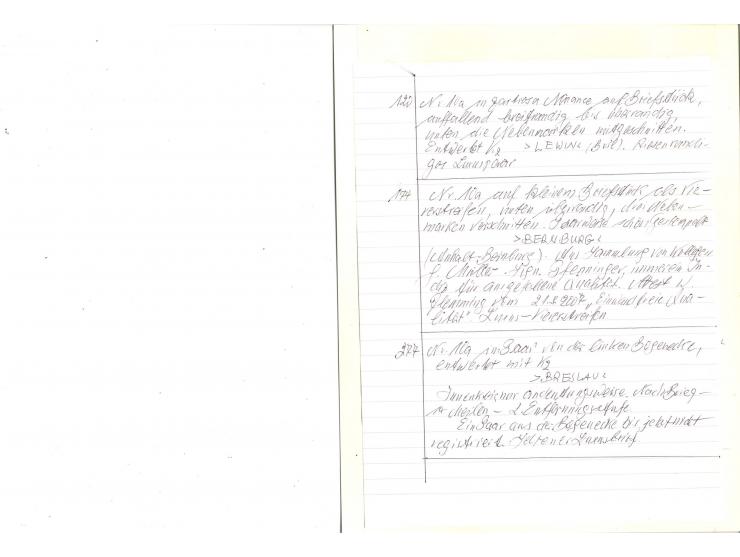 120 Nr. 10a in zartrosa Nuance auf Briefstück,
auffallend breitrandig bis überrandig,
unten die Nebenmarken mitgeschnitten.
Entwertet K2 >LEWIN< (Bresl). Riesenrandi-
ges Luxuspaar
174 Nr. 10a auf kleinem Briefstück als Vie-
rerstreifen, unten überrandig, drei Neben-
marken vorschnitten. Paarweise schön gestempelt
>BERNBURG<
(Anhalt-Bernburg). Aus Sammlung von
f. Müller. Sign. Pfenninger,
dig für angefallene Qualität. Attest W.
Flemming vom 21.8.2007 „Einwandfreie Qua-
lität" Luxus-Viererstreifen
277 Nr. 10a im Paar von der linken Bogenecke,
entwertet mit K2
>BRESLAU<
Innenkreis nur andeutungsweise. Nach Brieg
Meilen – 2. Entfernungsstufe.
Ein Paar aus der Bogenecke bis jetzt nicht
registriert. Seltener Luxusbrief.